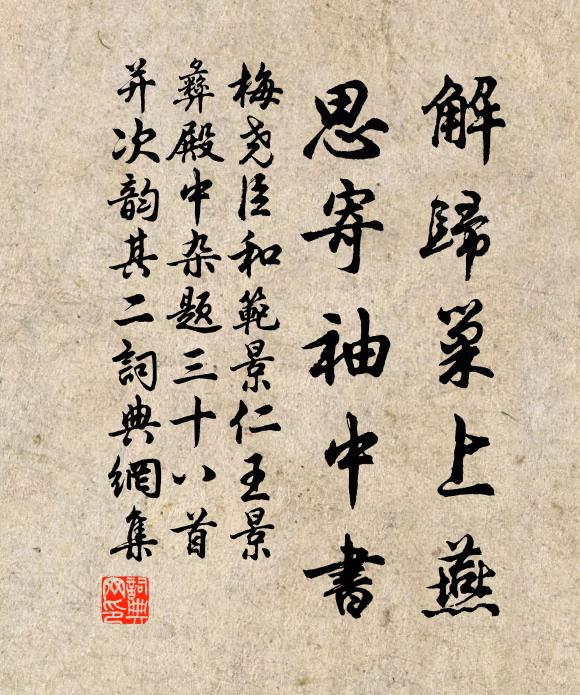 解歸巢上燕
思寄袖中書
梅堯臣和範景仁王景
彝殿中杂題三十八首
并次韵其二詞典網集
詞典網印